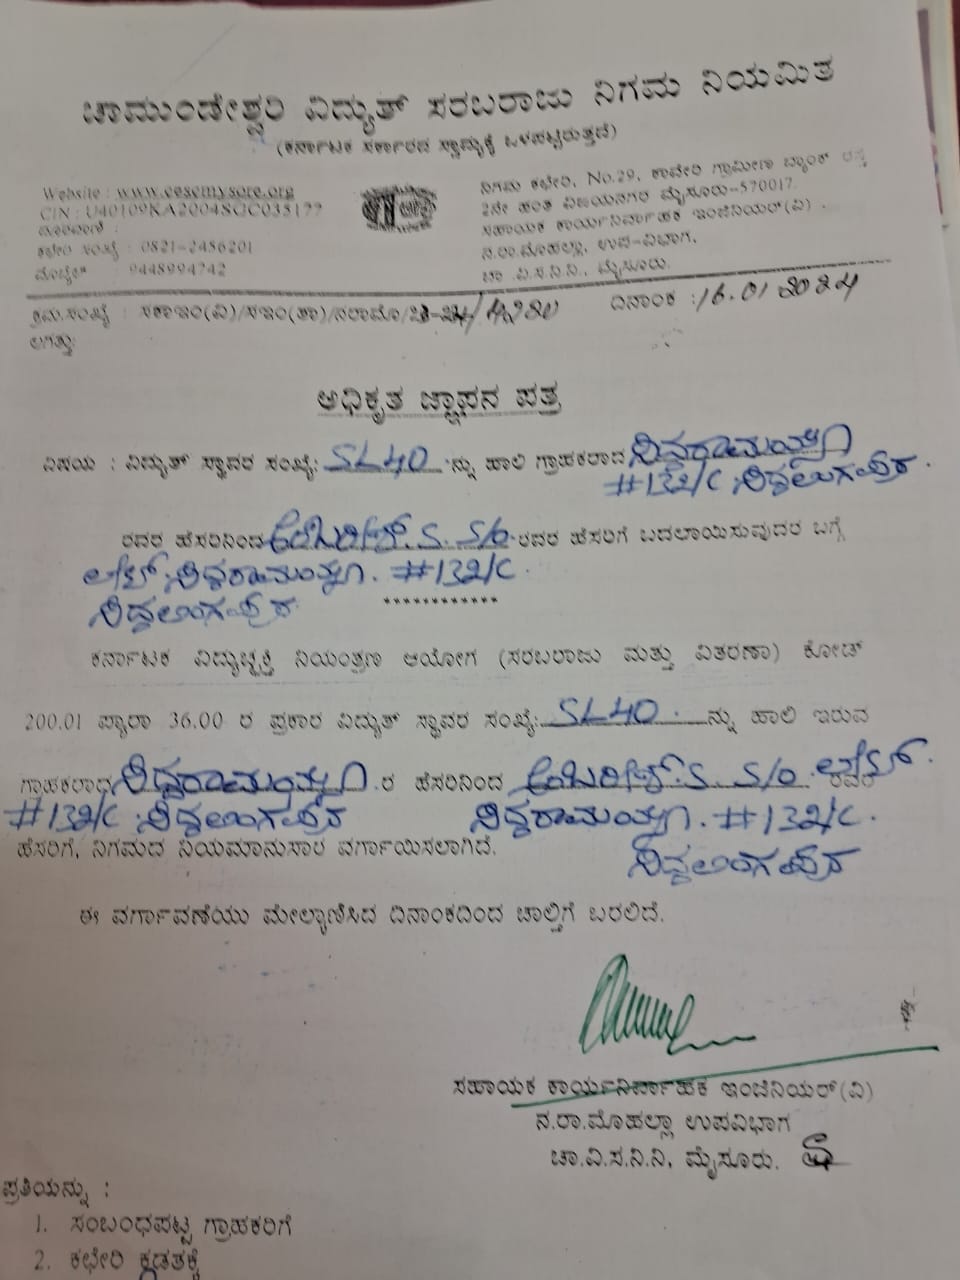 ಚಾಮುಂಡೇಶ್ವರಿ ವಿದ್ಯುತ್ ಸರಬರಾಜು ನಿಗಮ ನಿಯಮಿತ
(ಕರ್ನಾಟಕ ಸರ್ಕಾರದ ಸ್ವಾಮ್ಯಕ್ಕೆ ಒಳಪಟ್ಟಿರುತ್ತದೆ)
Website : www.cescmysore.org
CIN : U40109KA2004SGC035177
ದೂರವಾಣಿ :
ಕಛೇರಿ ಸಂಖ್ಯೆ : 0821-2456201
ಮೊಬೈಲ್ : 9448994742
ನಿಗಮ ಕಛೇರಿ, No.29, ಕಾವೇರಿ ಗ್ರಾಮೀಣ ಬ್ಯಾಂಕ್ ರಸ್ತೆ
2ನೇ ಹಂತ ವಿಜಯನಗರ ಮೈಸೂರು-570017.
ಸಹಾಯಕ ಕಾರ್ಯನಿರ್ವಾಹಕ ಇಂಜಿನಿಯರ್(ವಿ) .
ನ.ರಾ.ಮೊಹಲ್ಲಾ, ಉಪ-ವಿಭಾಗ,
ಚಾ .ವಿ.ಸ.ನಿ.ನಿ., ಮೈಸೂರು.
ಕ್ರಮ.ಸಂಖ್ಯೆ : ಸಕಾಇಂ(ವಿ)/ಸಇಂ(ತಾ)/ನರಾಮೊ/23-24/
ದಿನಾಂಕ :16.01 2024
ಲಗತ್ತು:
ಅಧಿಕೃತ ಜ್ಞಾಪನ ಪತ್ರ
ವಿಷಯ : ವಿದ್ಯುತ್ ಸ್ಥಾವರ ಸಂಖ್ಯೆ: SL40 ನ್ನು ಹಾಲಿ ಗ್ರಾಹಕರಾದ ಸಿದ್ದರಾಮಯ್ಯ
#132/C ಸಿದ್ದಲಿಂಗಪುರ.
ರವರ ಹೆಸರಿನಿಂದ ಅಂಬರೀಶ್. S. S/o ರವರ ಹೆಸರಿಗೆ ಬದಲಾಯಿಸುವುದರ ಬಗ್ಗೆ
ಲೇಟ್. ಸಿದ್ದರಾಮಯ್ಯ. #132/C.
ಸಿದ್ದಲಿಂಗಪುರ
************
ಕರ್ನಾಟಕ ವಿದ್ಯುಚ್ಛಕ್ತಿ ನಿಯಂತ್ರಣ ಆಯೋಗ (ಸರಬರಾಜು ಮತ್ತು ವಿತರಣಾ) ಕೋಡ್
200.01 ಪ್ಯಾರಾ 36.00 ರ ಪ್ರಕಾರ ವಿದ್ಯುತ್ ಸ್ಥಾವರ ಸಂಖ್ಯೆ: SL40. ನ್ನು ಹಾಲಿ ಇರುವ
ಗ್ರಾಹಕರಾದ ಸಿದ್ದರಾಮಯ್ಯ ರ ಹೆಸರಿನಿಂದ ಅಂಬರೀಶ್. S. S/o. ಲೇಟ್. ರವರ
#132/C ಸಿದ್ದಲಿಂಗಪುರ ಸಿದ್ದರಾಮಯ್ಯ. #132/C.
ಹೆಸರಿಗೆ, ನಿಗಮದ ನಿಯಮಾನುಸಾರ ವರ್ಗಾಯಿಸಲಾಗಿದೆ.
ಸಿದ್ದಲಿಂಗಪುರ
ಈ ವರ್ಗಾವಣೆಯು ಮೇಲ್ಕಾಣಿಸಿದ ದಿನಾಂಕದಿಂದ ಚಾಲ್ತಿಗೆ ಬರಲಿದೆ.
ಸಹಾಯಕ ಕಾರ್ಯನಿರ್ವಾಹಕ ಇಂಜಿನಿಯರ್(ವಿ)
ನ.ರಾ.ಮೊಹಲ್ಲಾ ಉಪವಿಭಾಗ
ಚಾ.ವಿ.ಸ.ನಿ.ನಿ, ಮೈಸೂರು.
ಪ್ರತಿಯನ್ನು :
1. ಸಂಬಂಧಪಟ್ಟ ಗ್ರಾಹಕರಿಗೆ
2. ಕಛೇರಿ ಕಡತಕ್ಕೆ